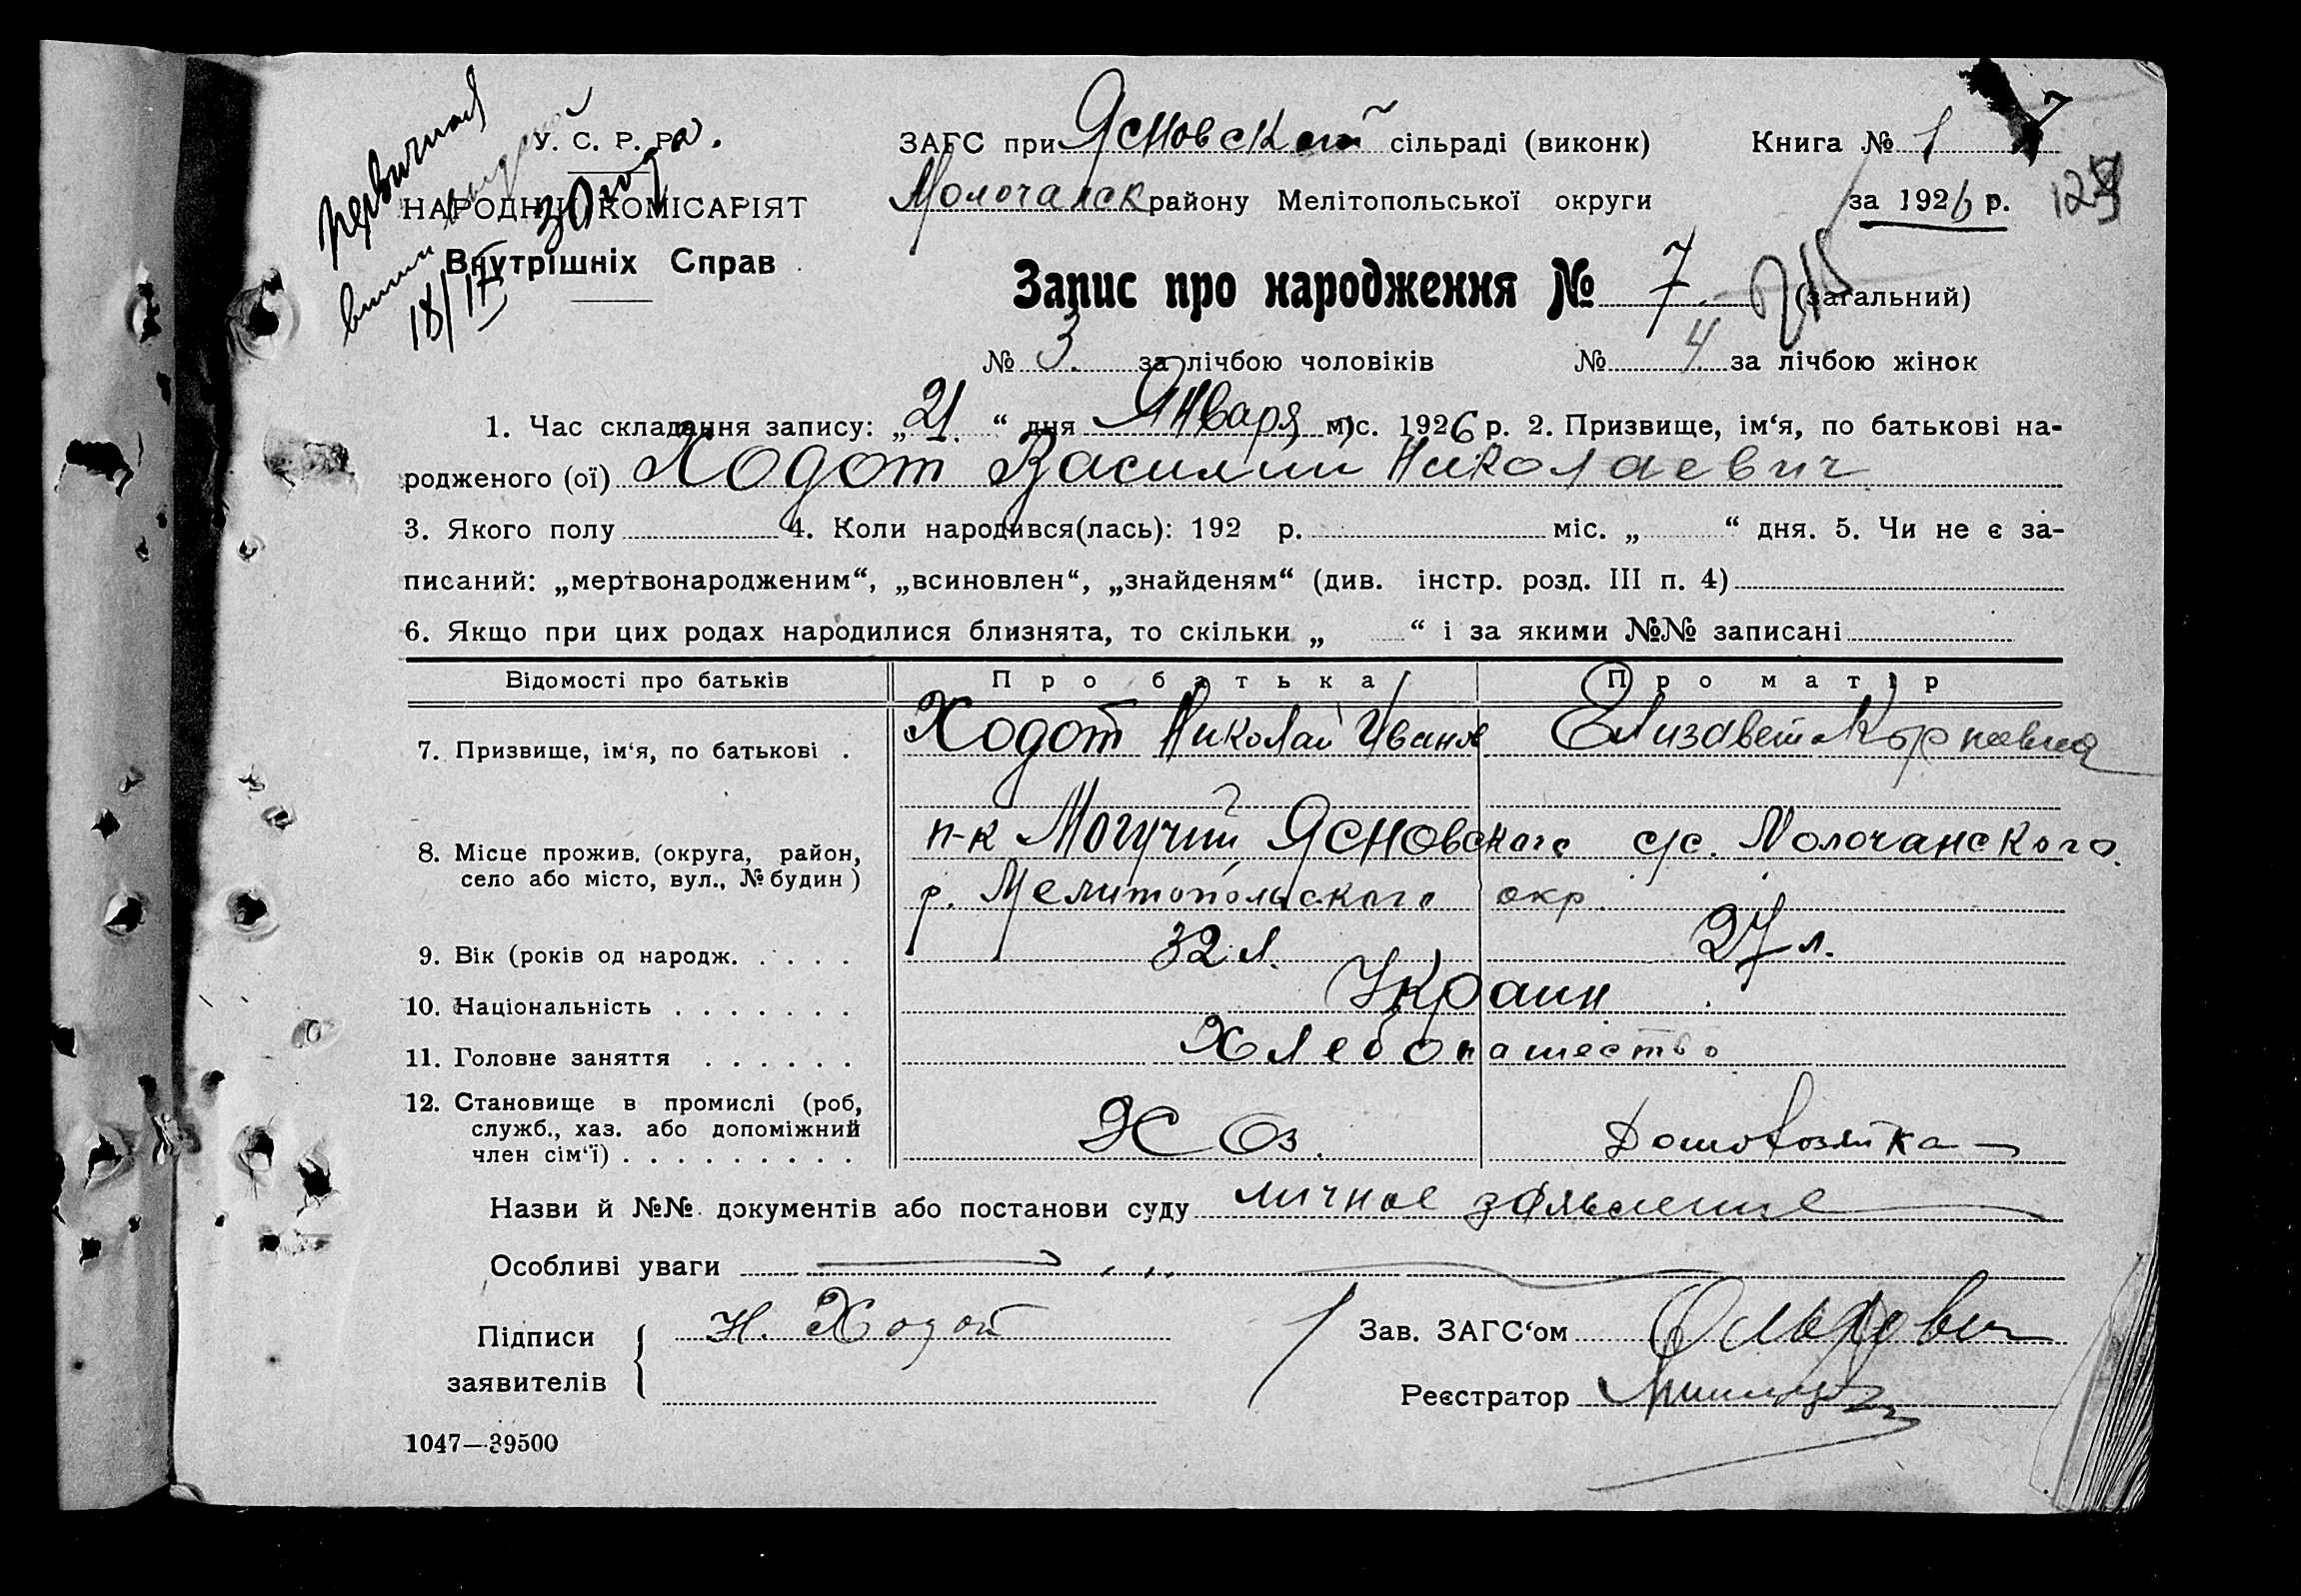 первичная
У. С. Р. Р.
30 года.
НАРОДНІЙ КОМІСАРІЯТ
Внутрішніх Справ
18/IV
ЗАГС при Ясновской сільраді (виконк) Книга № 1
7
Молочанск району Мелітопольської округи за 1926 р.
Запис про народження № 7 (загальний)
№ 3. за лічбою чоловіків № 4 за лічбою жінок
1. Час складання запису: „21“ дня Января міс. 1926 р. 2. Призвище, ім‘я, по батькові на-
родженого (ої) Ходот Василий Николаевич
3. Якого полу 4. Коли народився(лась): 192 р. міс. „ “ дня. 5. Чи не є за-
писаний: „мертвонародженим“, „всиновлен“, „знайденям“ (див. інстр. розд. III п. 4)
6. Якщо при цих родах народилися близнята, то скільки „ “ і за якими №№ записані
Відомості про батьків Про батька Про матір
7. Призвище, ім‘я, по батькові . Ходот Николай Иванов Елизавета Карповна
8. Місце прожив. (округа, район, п-к Могучий Ясновского с/с. Молочанского.
село або місто, вул., № будин) р. Мелитопольского окр.
9. Вік (років од народж. . . . . 32 л. 27 л.
10. Національність . . . . . . . Украин
11. Головне заняття . . . . . . Хлебопашество
12. Становище в промислі (роб,
служб., хаз. або допоміжний Хоз. Домохозяйка
член сім‘ї) . . . . . . . . .
Назви й №№ документів або постанови суду личное заявление
Особливі уваги
Підписи Н. Ходот Зав. ЗАГС‘ом
заявителів Реєстратор
1047—39500